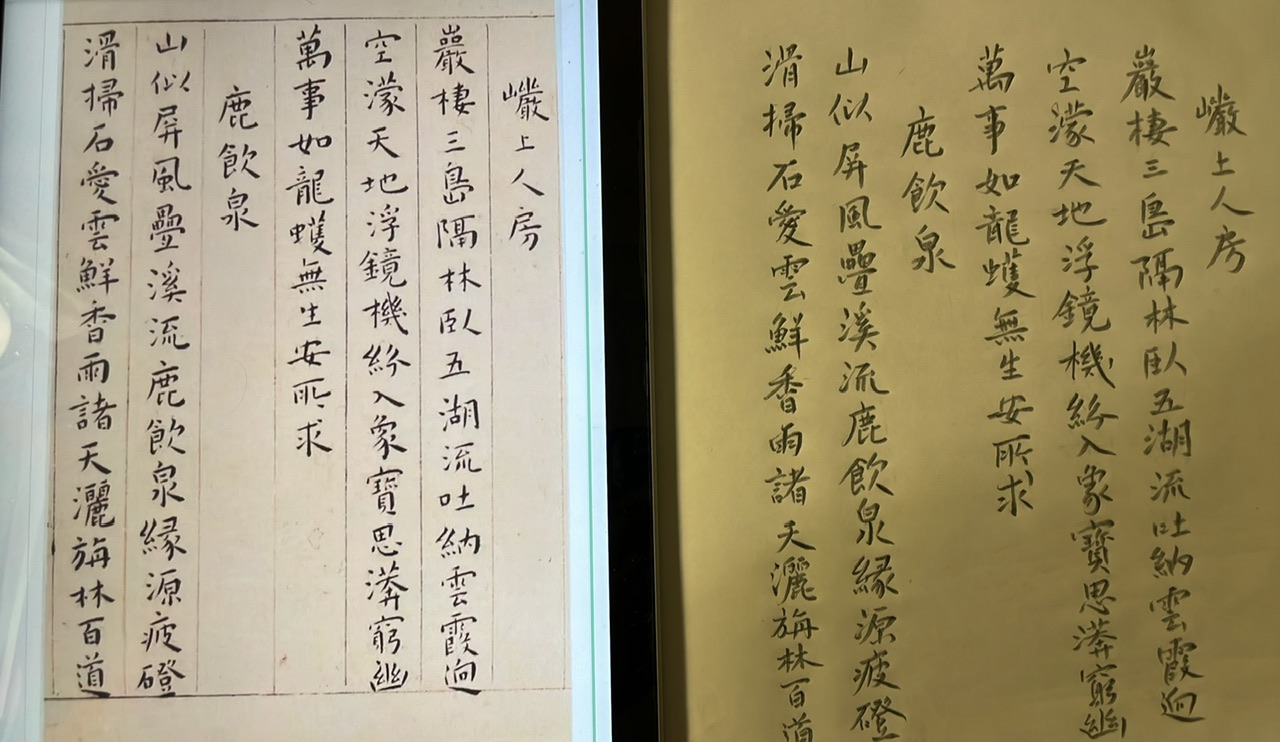 巘上人房
巖棲三島隔林臥五湖流吐納雲霞迥
空濛天地浮鏡機紛入象寶思滿窮幽
萬事如龍蠖無生安所求
鹿飲泉
山似屏風疊溪流鹿飲泉緣源疲磴
滑掃石愛雲鮮香雨諸天灑旃林百道
巘上人房
巖棲三島隔林臥五湖流吐納雲霞迥
空濛天地浮鏡機紛入象寶思滿窮幽
萬事如龍蠖無生安所求
鹿飲泉
山似屏風疊溪流鹿飲泉緣源疲磴
滑掃石愛雲鮮香雨諸天灑旃林百道